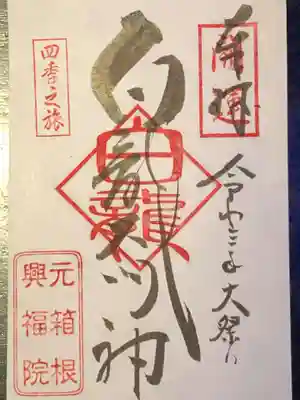 奉拝
開運
令和
大祭
白龍大明神
四季之旅
元箱根
興福院